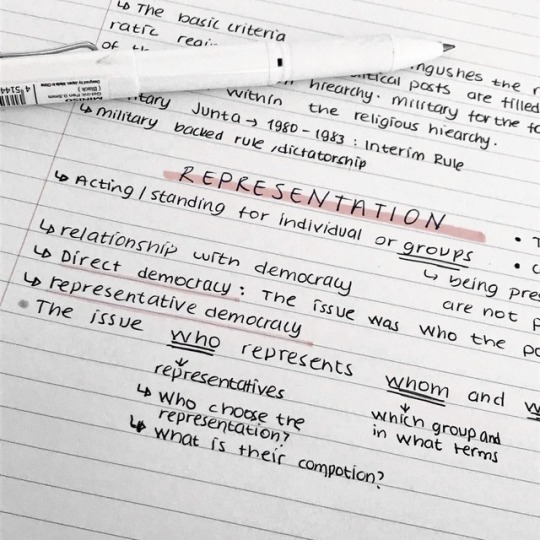 ↳ The basic criteria
ratic regi
of th
ngushes the r
itical posts are filled
hiearchy. military for the fo
within the religious hiearchy.
itary Junta → 1980 - 1983 : Interim Rule
↳ military backed rule / dictatorship
REPRESENTATION
↳ Acting / standing for individual or groups
↳ being pres
are not p
↳ relationship with democracy
↳ Direct democracy : The issue was who the po
↳ representative democracy
• The issue who represents whom and w
representatives
↳ who choose the
representation?
↳ what is their compotion?
which group and
in what terms